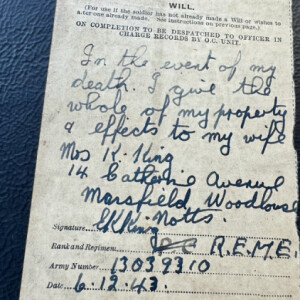 WILL.
(For use if the soldier has not already made a Will or wishes to
alter one already made. See instructions on previous page.)
ON COMPLETION TO BE DESPATCHED TO OFFICER IN
CHARGE RECORDS BY O.C. UNIT.
In the event of my
death. I give the
whole of my property
& effects to my wife
Mrs K. King
14 Catherine Avenue
Mansfield Woodhouse
Notts.
Signature
Rank and Regiment R.E.M.E.
Army Number 13039310
Date 6.12.43.